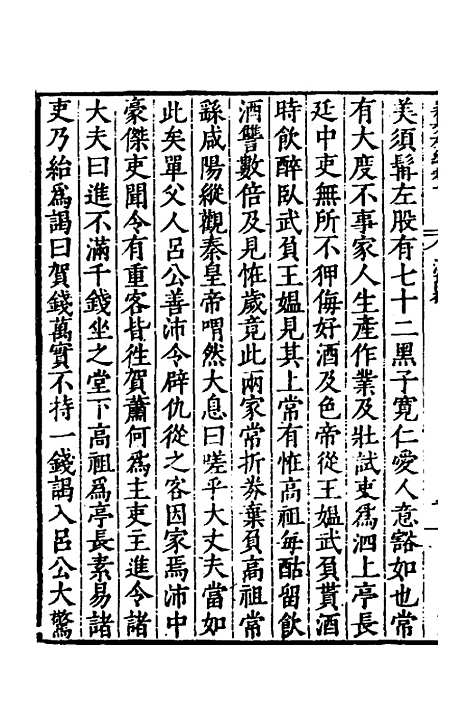 美須髯左股有七十二黑子寬仁愛人意豁如也常
有大度不事家人生産作業及壯試吏爲泗上亭長
廷中吏無所不狎侮好酒及色帝從王媪武負貰酒
時飲醉臥武負王媪見其上常有怪高祖每酤留飲
酒讐數倍及見怪歲竟此兩家常折券棄負高祖常
繇咸陽縱觀秦皇帝喟然大息曰嗟乎大丈夫當如
此矣單父人呂公善沛令辟仇從之客因家焉沛中
豪傑吏聞令有重客皆往賀蕭何爲主吏主進令諸
大夫曰進不滿千錢坐之堂下高祖爲亭長素易諸
吏乃紿爲謁曰賀錢萬實不持一錢謁入呂公大驚